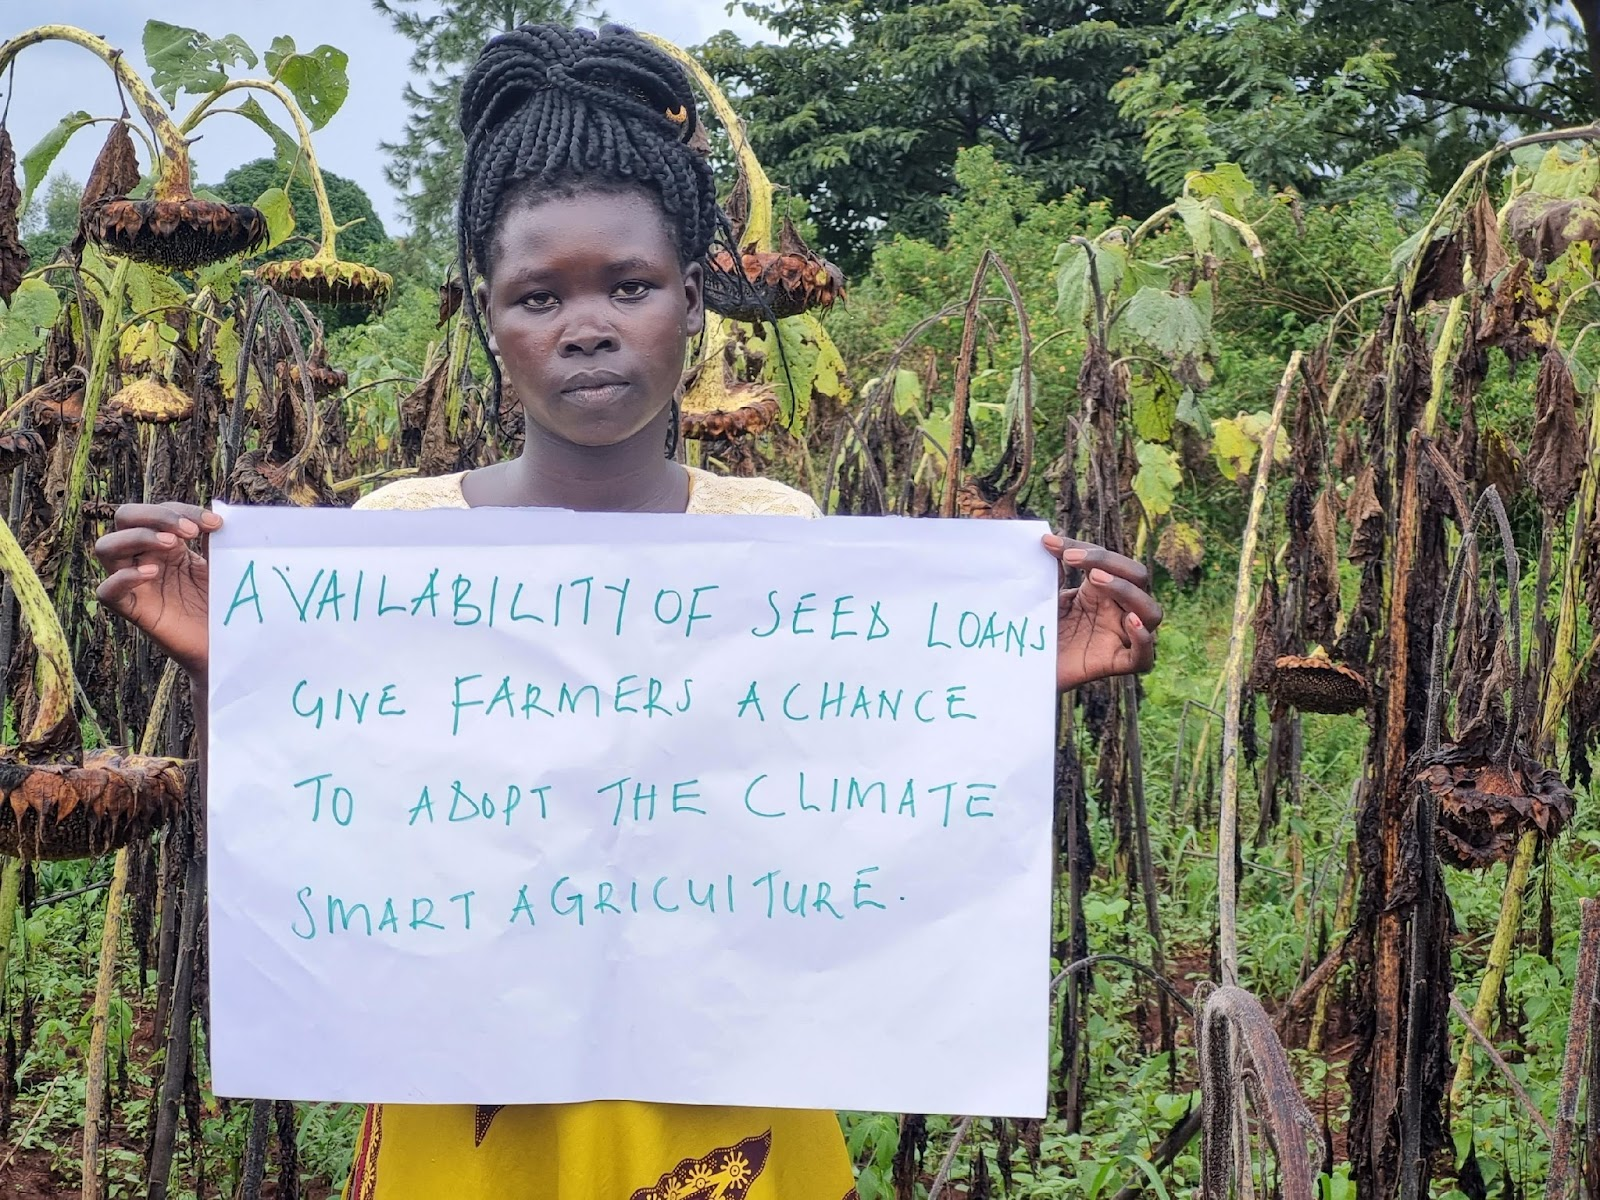 AVAILABILITY OF SEED LOANS
GIVE FARMERS A CHANCE
TO ADOPT THE CLIMATE
SMART AGRICULTURE.